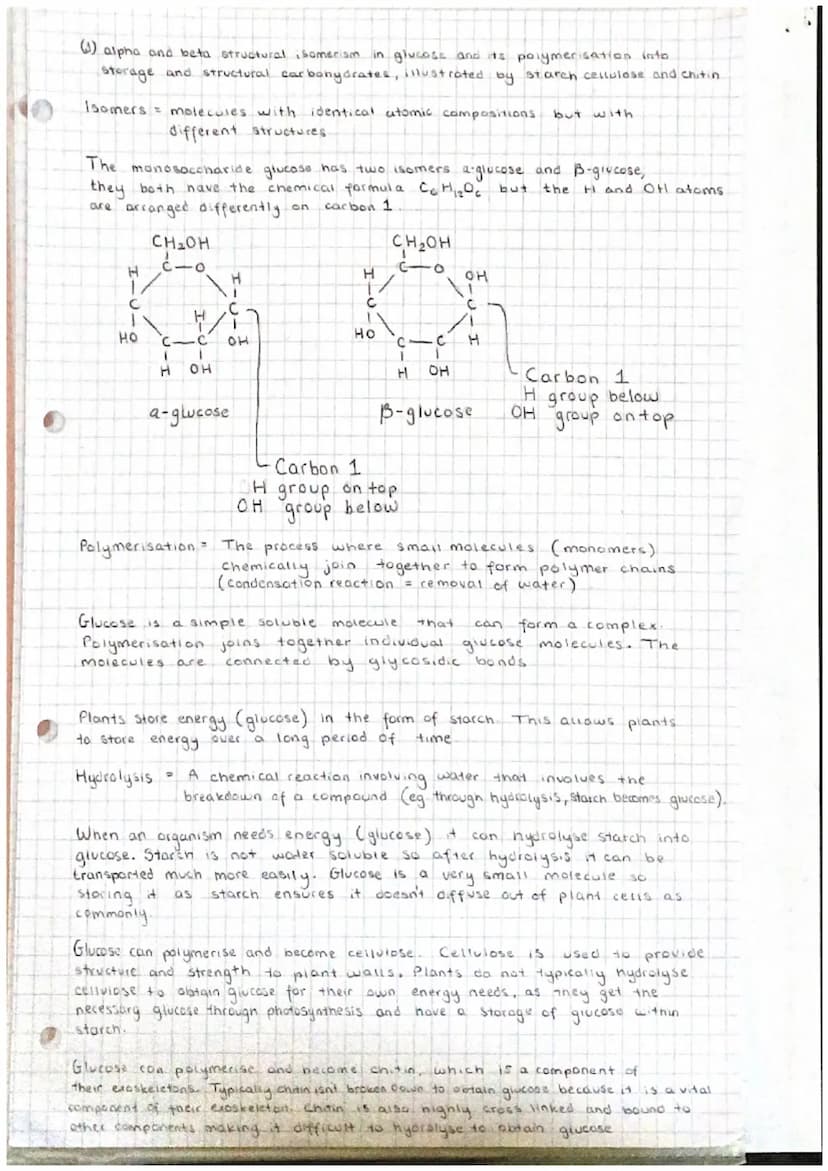 (i) alpha and beta structural isomerism in glucose and its polymerisation into
storage and structural carbohydrates, illustrated by starch cellulose and chitin
Isomers = molecules with identical atomic compositions but with
different structures
The monosaccharide glucose has two isomers α-glucose and β-glucose,
they both have the chemical formula C₆H₁₂O₆ but the H and OH atoms
are arranged differently on carbon 1.
CH₂OH
C—O
H
H
C
H
C
HO
C—C
OH
H OH
α-glucose
CH₂OH
C—O
H
OH
C
C
HO
C—C
H
H OH
β-glucose
Carbon 1
H group below
OH group on top
Carbon 1
H group on top
OH group below
Polymerisation = The process where small molecules (monomers)
chemically join together to form polymer chains
(condensation reaction = removal of water)
Glucose is a simple soluble molecule that can form a complex.
Polymerisation joins together individual glucose molecules. The
molecules are connected by glycosidic bonds
Plants store energy (glucose) in the form of starch. This allows plants
to store energy over a long period of time
Hydrolysis = A chemical reaction involving water that involves the
breakdown of a compound (eg. through hydrolysis, starch becomes glucose).
When an organism needs energy (glucose) it can hydrolyse starch into
glucose. Starch is not water soluble so after hydrolysis it can be
transported much more easily. Glucose is a very small molecule so
storing it as starch ensures it doesn't diffuse out of plant cells as
commonly.
Glucose can polymerise and become cellulose. Cellulose is used to provide
structure and strength to plant walls. Plants do not typically hydrolyse
cellulose to obtain glucose for their own energy needs, as they get the
necessary glucose through photosynthesis and have a storage of glucose within
starch.
Glucose can polymerise and become chitin, which is a component of
their exoskeletons. Typically chitin isnt broken down to obtain glucose because it is a vital
component of their exoskeleton. Chitin is also highly cross linked and bound to
other components making it difficult to hydrolyse to obtain glucose